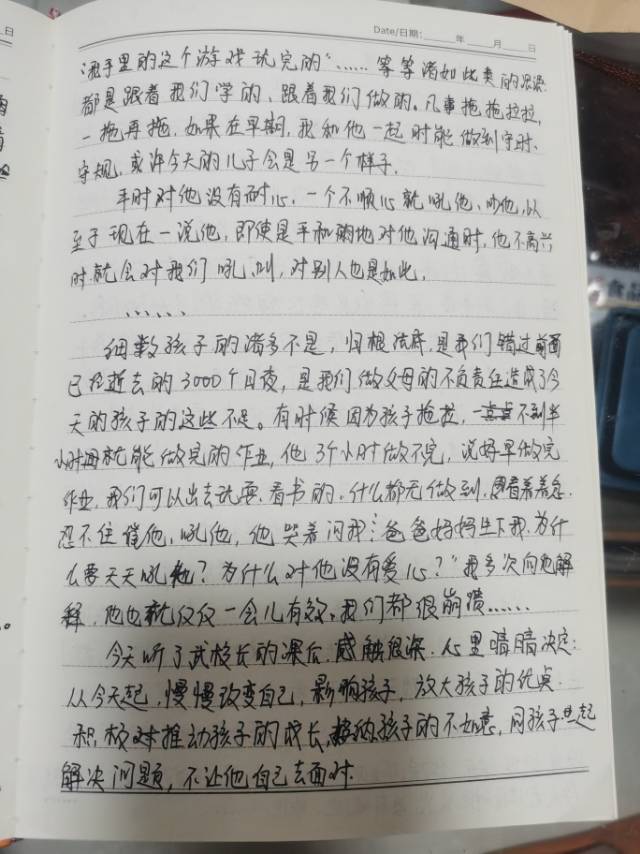 Date/日期:____年____月____日
手里的这个游戏玩完的”……等等诸如此类的
都是跟着我们学的、跟着我们做的。凡事拖拖拉拉,
一拖再拖,如果在早期,我和他一起时能做到守时、
守规,或许今天的儿子会是另一个样子。
平时对他没有耐心,一个不顺心就吼他、吵他,以
至于现在一说他,即使是平和的地对他沟通时,他不高兴
时就会对我们吼、叫,对别人也是如此。
……
细数孩子的诸多不是,归根结底,是我们错过前面
已经逝去的3000个日夜,是我们做父母的不负责任造成了今
天的孩子的这些不足。有时候因为孩子拖拉,不到半
小时就能做完的作业,他3个小时做不完,说好早做完
作业,我们可以出去玩耍、看书的,什么都无做到,看着着急,
忍不住催他,吼他,他哭着问我:“爸爸妈妈生下我,为什
么要天天吼他?为什么对他没有爱心?”我多次向他解
释,他也就仅仅一会儿有效,我们都很崩溃……
今天听了武校长的课后,感触很深,心里暗暗决定:
从今天起,慢慢改变自己,影响孩子,放大孩子的优点
积极对推动孩子的成长,接纳孩子的不如意,同孩子一起
解决问题,不让他自己去面对.
日
食品